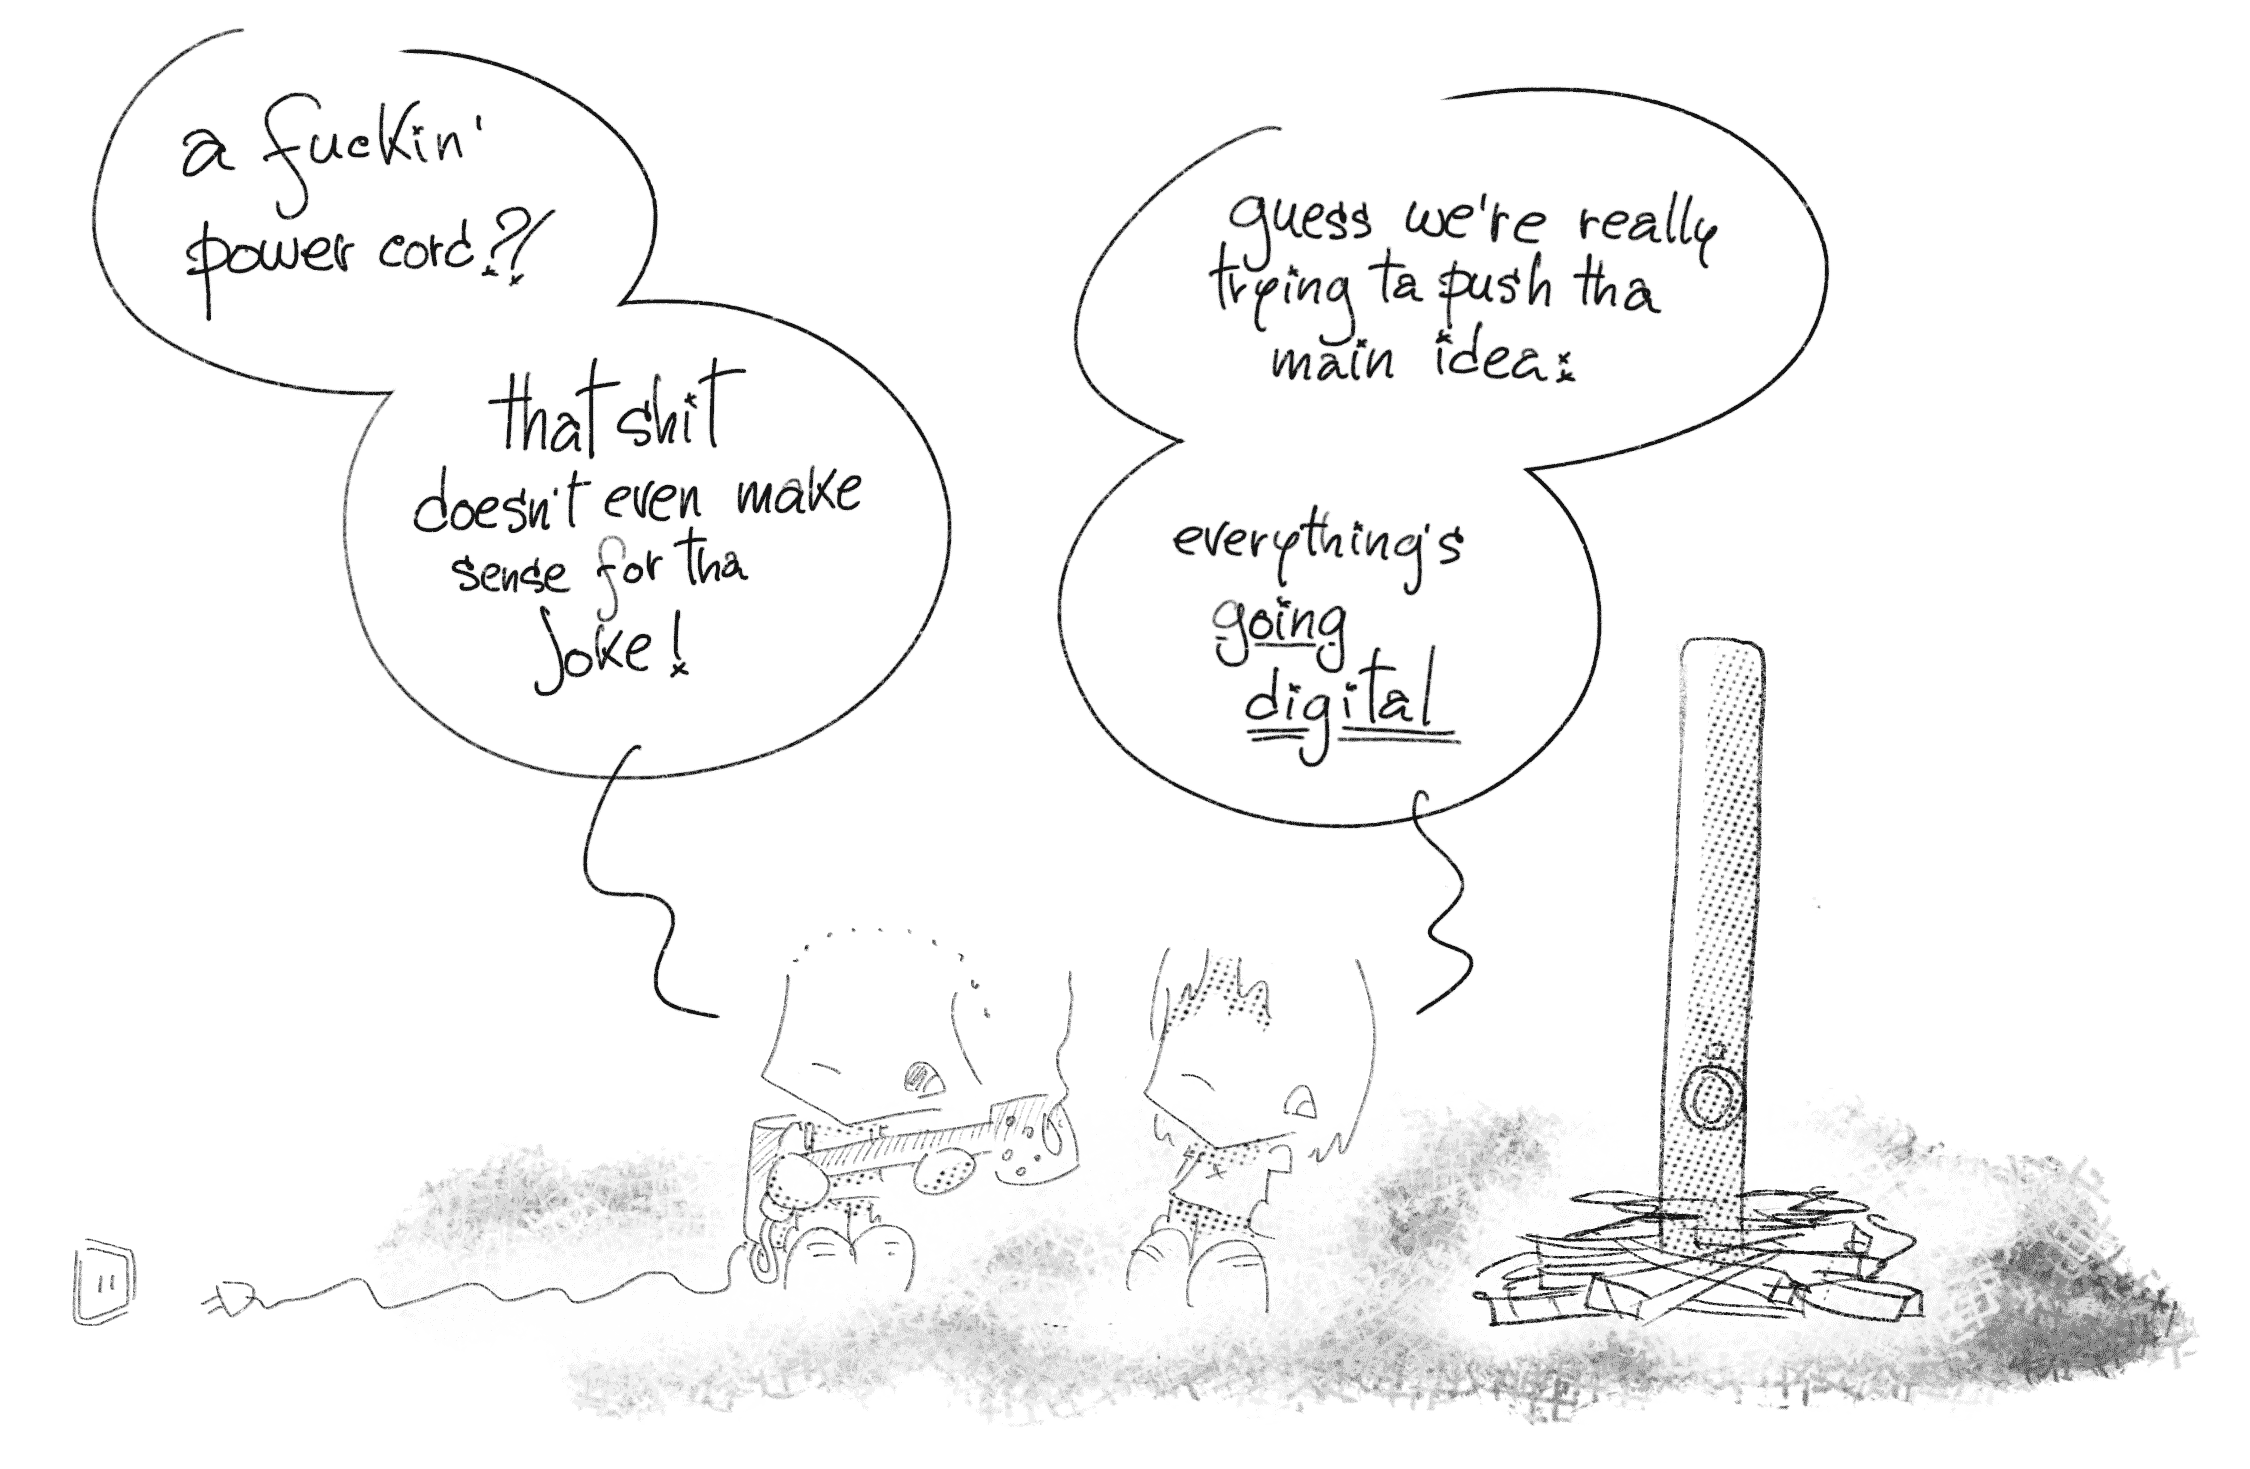 a fuckin'
power cord?!
that shit
doesn't even make
sense for tha
joke!
guess we're really
trying ta push tha
main idea:
everything's
going
digital